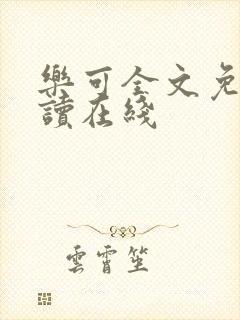 樂可全文免
讀在綫
雲霄笙